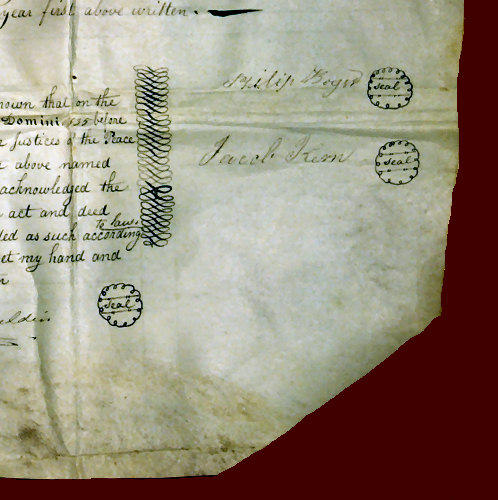 year first above written.
Philip Boger seal
nown that on the
Domini before
Justices of the Peace
Jacob Kern seal
above named
acknowledged the
act and deed
to law.
ded as such according
et my hand and
seal